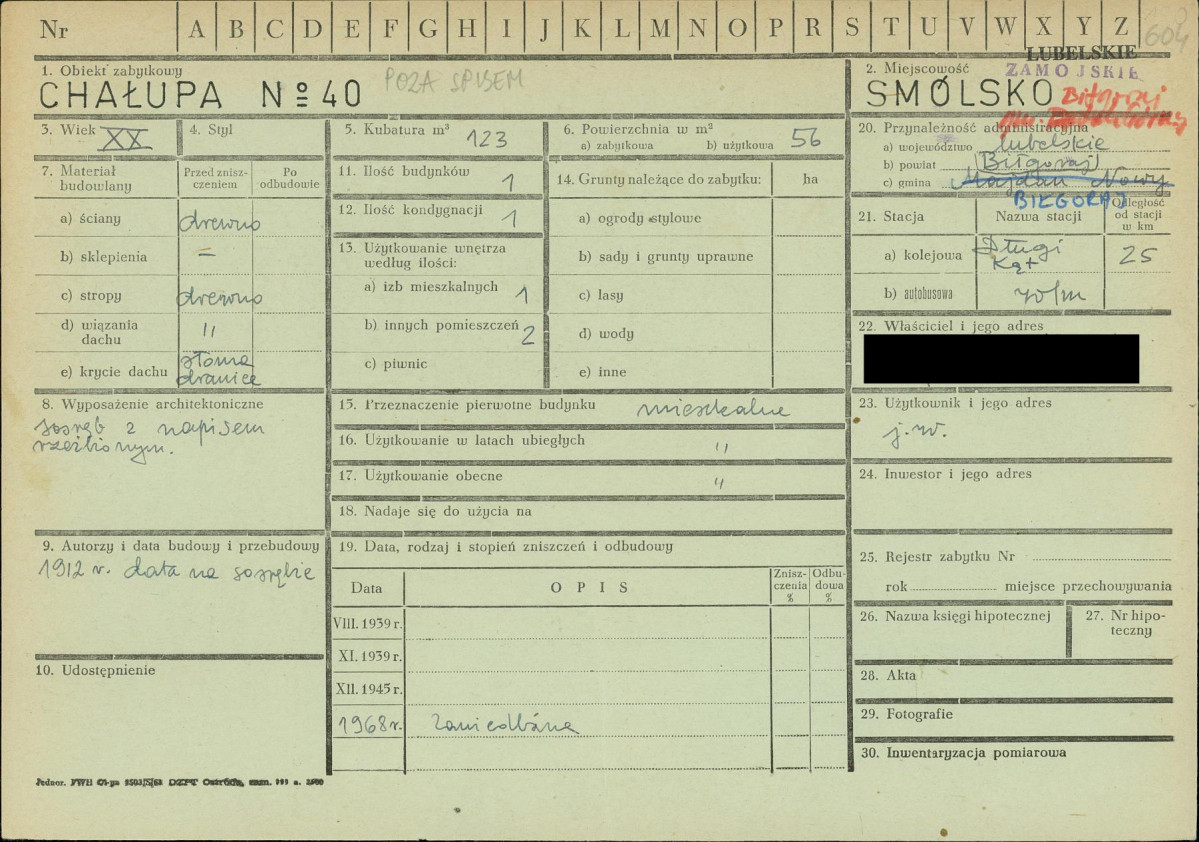 Nr A B C D E F G H I J K L M N O P R S T U V W X Y Z 604
LUBELSKIE
ZAMOJSKIE
1. Obiekt zabytkowy
CHAŁUPA Nº 40
POZA SPISEM
2. Miejscowość
SMÓLSKO
Biłgoraj
3. Wiek XX
4. Styl
5. Kubatura m³ 123
6. Powierzchnia w m²
a) zabytkowa b) użytkowa 56
7. Materiał budowlany
Przed zniszczeniem
Po odbudowie
a) ściany drewno
b) sklepienia –
c) stropy drewno
d) wiązania dachu "
e) krycie dachu słoma dranice
8. Wyposażenie architektoniczne
sosręb z napisem
rzeźbionym.
9. Autorzy i data budowy i przebudowy
1912 r. data na sosrębie
10. Udostępnienie
11. Ilość budynków 1
12. Ilość kondygnacji 1
13. Użytkowanie wnętrza
według ilości:
a) izb mieszkalnych 1
b) innych pomieszczeń 2
c) piwnic
14. Grunty należące do zabytku: ha
a) ogrody stylowe
b) sady i grunty uprawne
c) lasy
d) wody
e) inne
15. Przeznaczenie pierwotne budynku mieszkalne
16. Użytkowanie w latach ubiegłych "
17. Użytkowanie obecne "
18. Nadaje się do użycia na
19. Data, rodzaj i stopień zniszczeń i odbudowy
Data OPIS Zniszczenia % Odbudowa %
VIII. 1939 r.
XI. 1939 r.
XII. 1945 r.
1968 r. zaniedbana
20. Przynależność administracyjna
a) województwo lubelskie
b) powiat Biłgoraj
c) gmina Majdan Nowy
BIŁGORAJ
21. Stacja Nazwa stacji Odległość od stacji w km
a) kolejowa Długi Kąt 25
b) autobusowa
22. Właściciel i jego adres
23. Użytkownik i jego adres
j.w.
24. Inwestor i jego adres
25. Rejestr zabytku Nr
rok miejsce przechowywania
26. Nazwa księgi hipotecznej
27. Nr hipoteczny
28. Akta
29. Fotografie
30. Inwentaryzacja pomiarowa